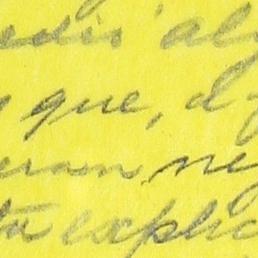 edir al
que, d
eram ne
ta explic